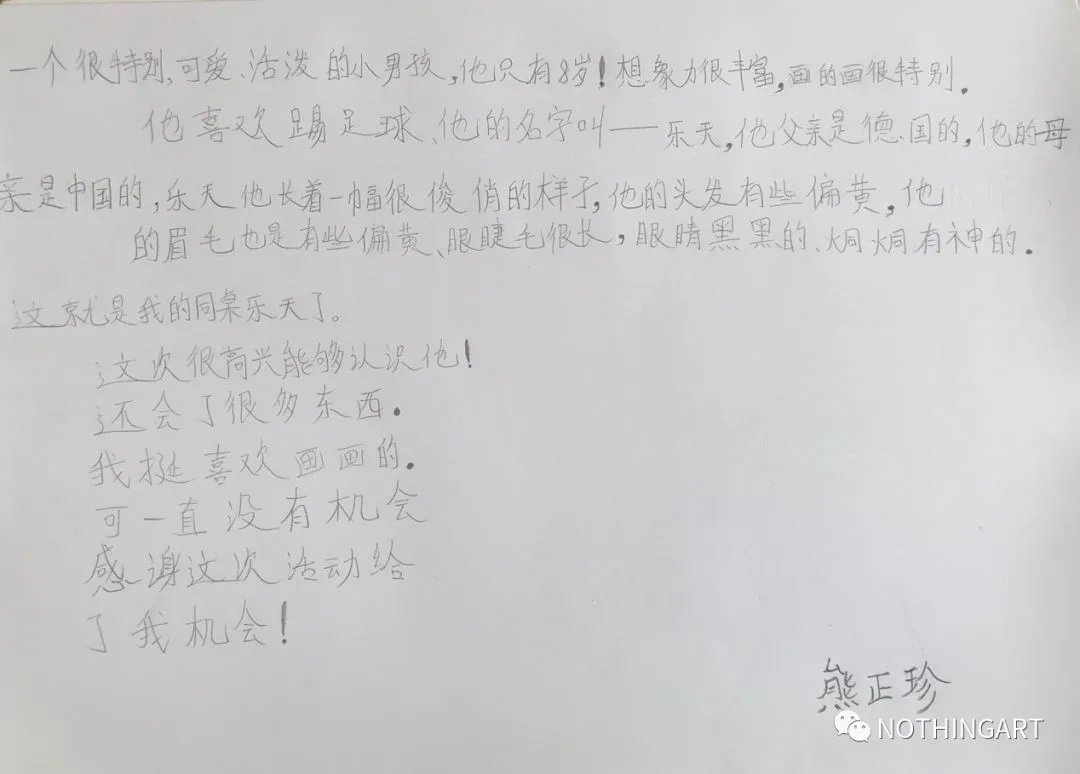 一个很特别,可爱、活泼的小男孩,他只有8岁!想象力很丰富,画的画很特别.
他喜欢踢足球、他的名字叫——乐天,他父亲是德国的,他的母
亲是中国的,乐天他长着一幅很俊俏的样子,他的头发有些偏黄,他
的眉毛也是有些偏黄、眼睫毛很长,眼睛黑黑的、炯炯有神的.
这就是我的同桌乐天了。
这次很高兴能够认识他!
还会了很多东西.
我挺喜欢画画的.
可一直没有机会
感谢这次活动给
了我机会!
熊正珍
NOTHINGART